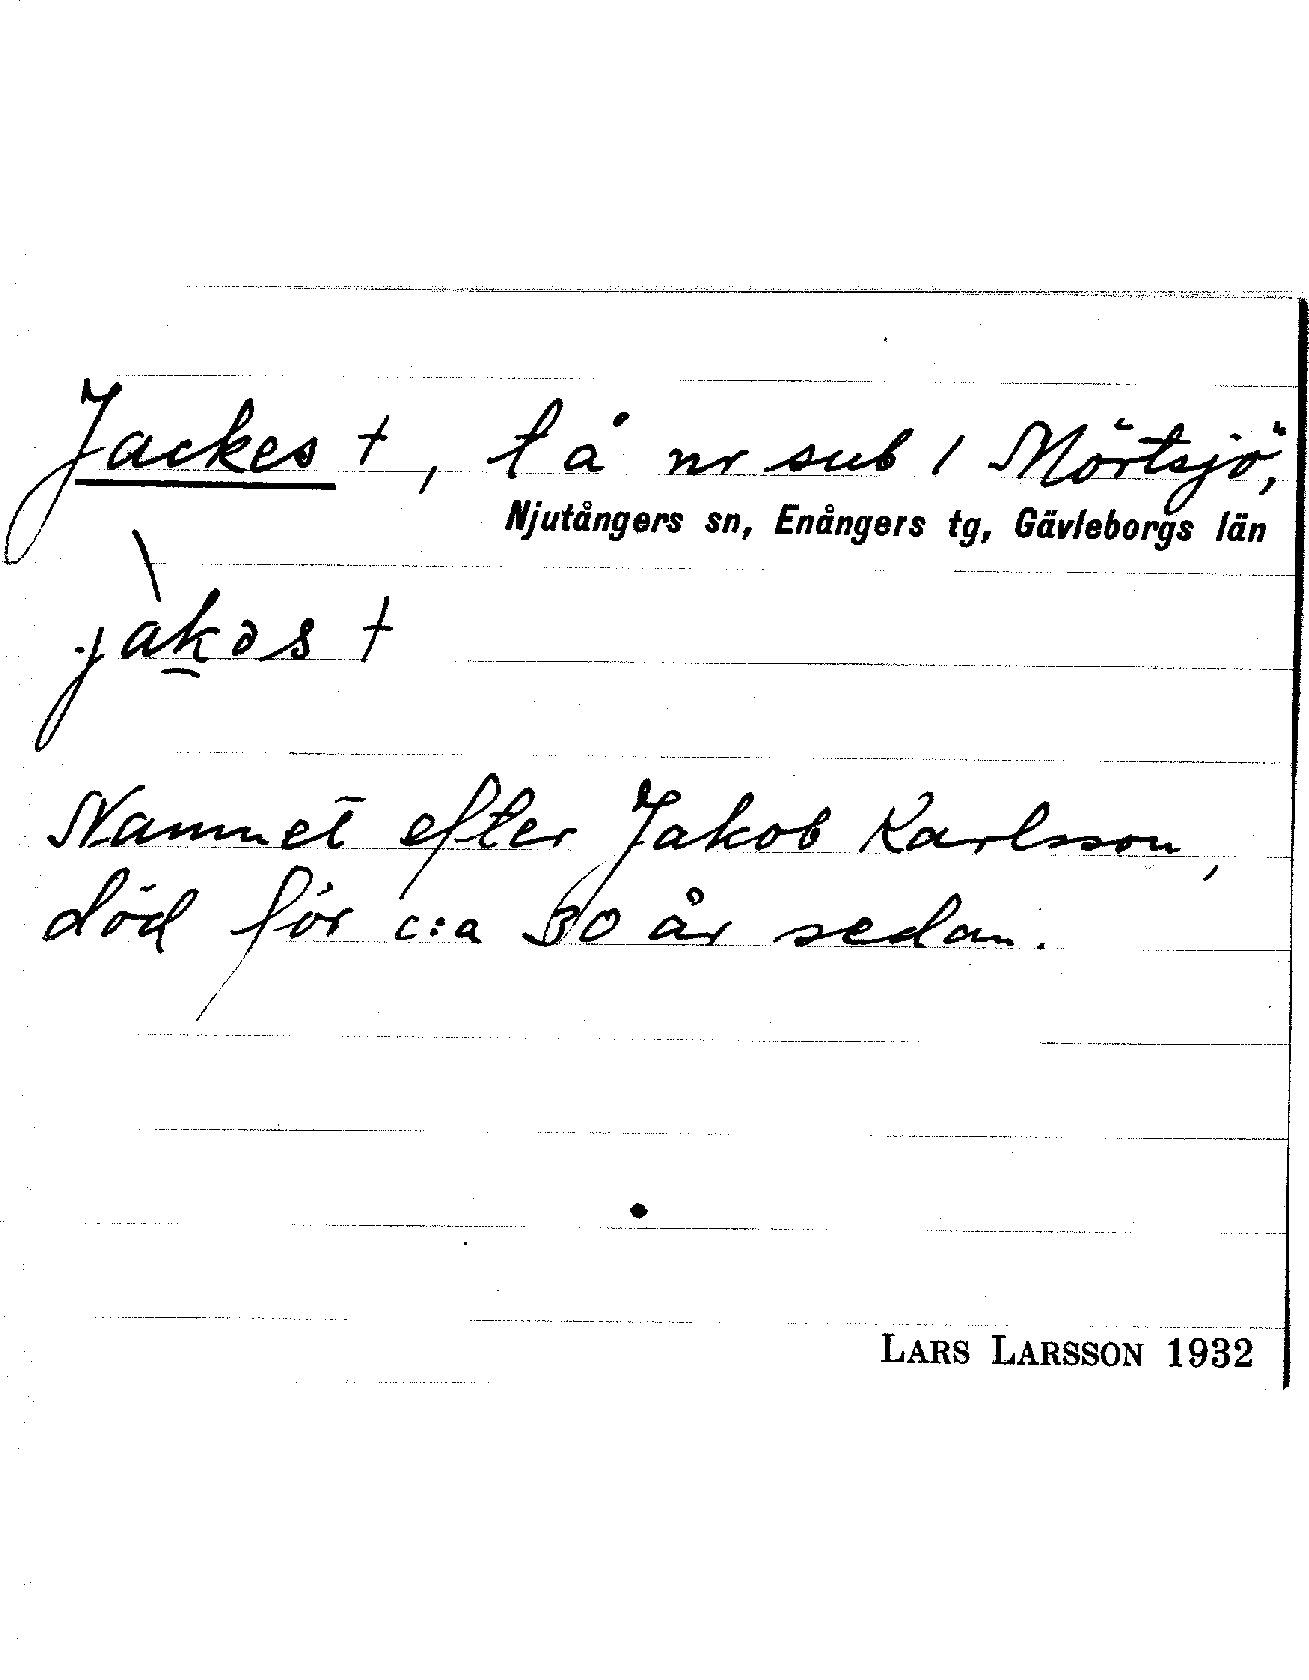 Jackes †, t å nr sub 1 Mörtsjö,
Njutångers sn, Enångers tg, Gävleborgs län
jàk̲əs †
Namnet efter Jakob Karlsson,
död för c:a 30 år sedan.
LARS LARSSON 1932